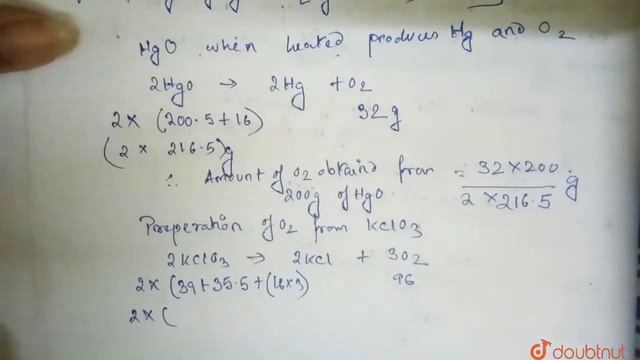 HgO when heated produces Hg and O2
2HgO → 2Hg + O2
2 × (200.5 + 16) 32g
(2 × 216.5)g
∴ Amount of O2 obtaind from = 32 × 200 / 2 × 216.5 g
200g of HgO.
Preperation of O2 from KClO3
2KClO3 → 2KCl + 3O2
2 × (39 + 35.5 + (16×3) 96
2 × (
doubtnut